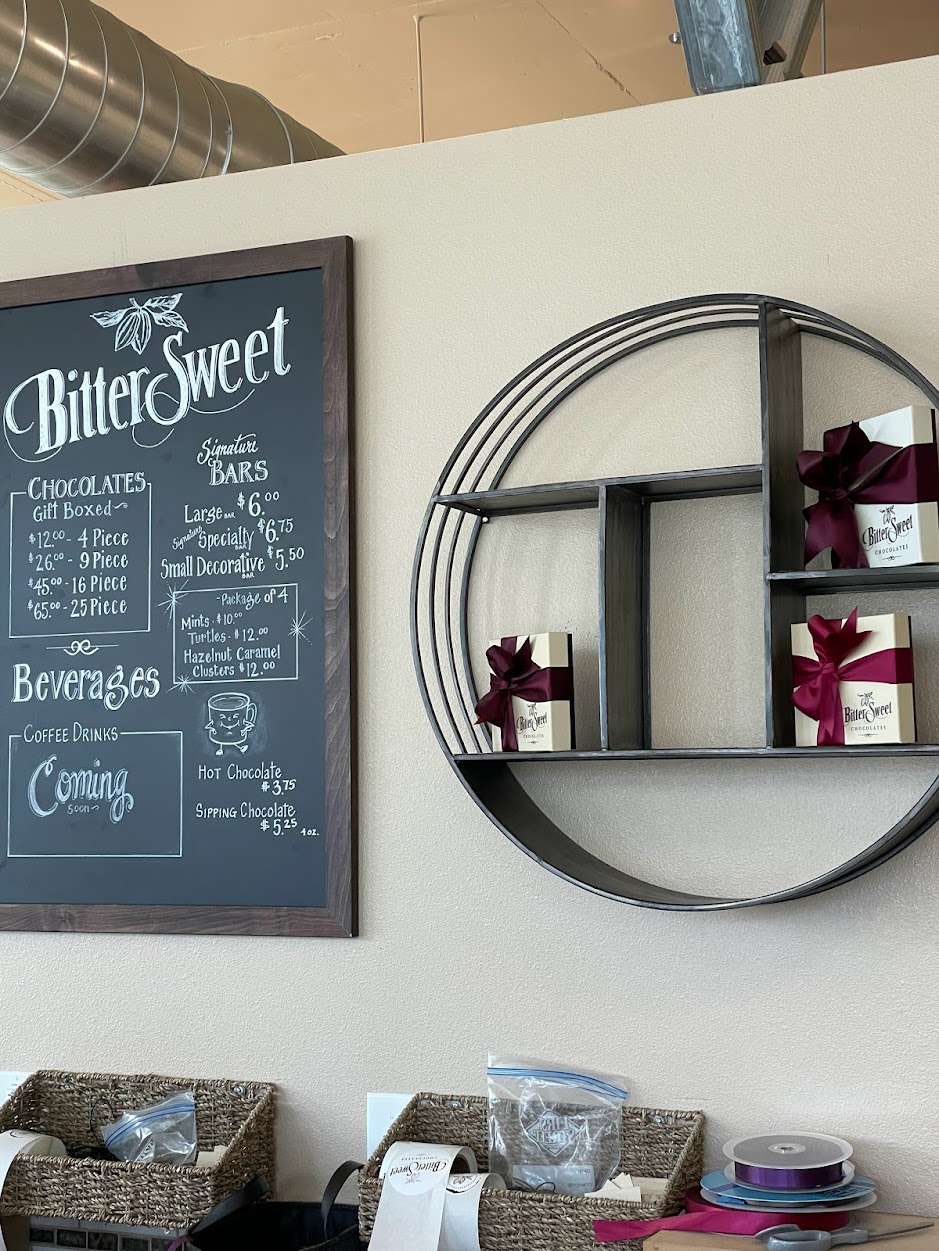 BitterSweet
CHOCOLATES
Gift Boxed
$12.00 - 4 Piece
$26.00 - 9 Piece
$45.00 - 16 Piece
$65.00 - 25 Piece
Signature
BARS
Large BAR $6.00
Signature Specialty BAR $6.75
Small Decorative BAR $5.50
-Package of 4
Mints - $10.00
Turtles - $12.00
Hazelnut Caramel
Clusters $12.00
Beverages
COFFEE DRINKS
Coming
soon
HOT Chocolate
$3.75
SIPPING Chocolate
$5.25 4oz.
BitterSweet
CHOCOLATES
BitterSweet
CHOCOLATES
BitterSweet
CHOCOLATES
BitterSweet
CHOCOLATES